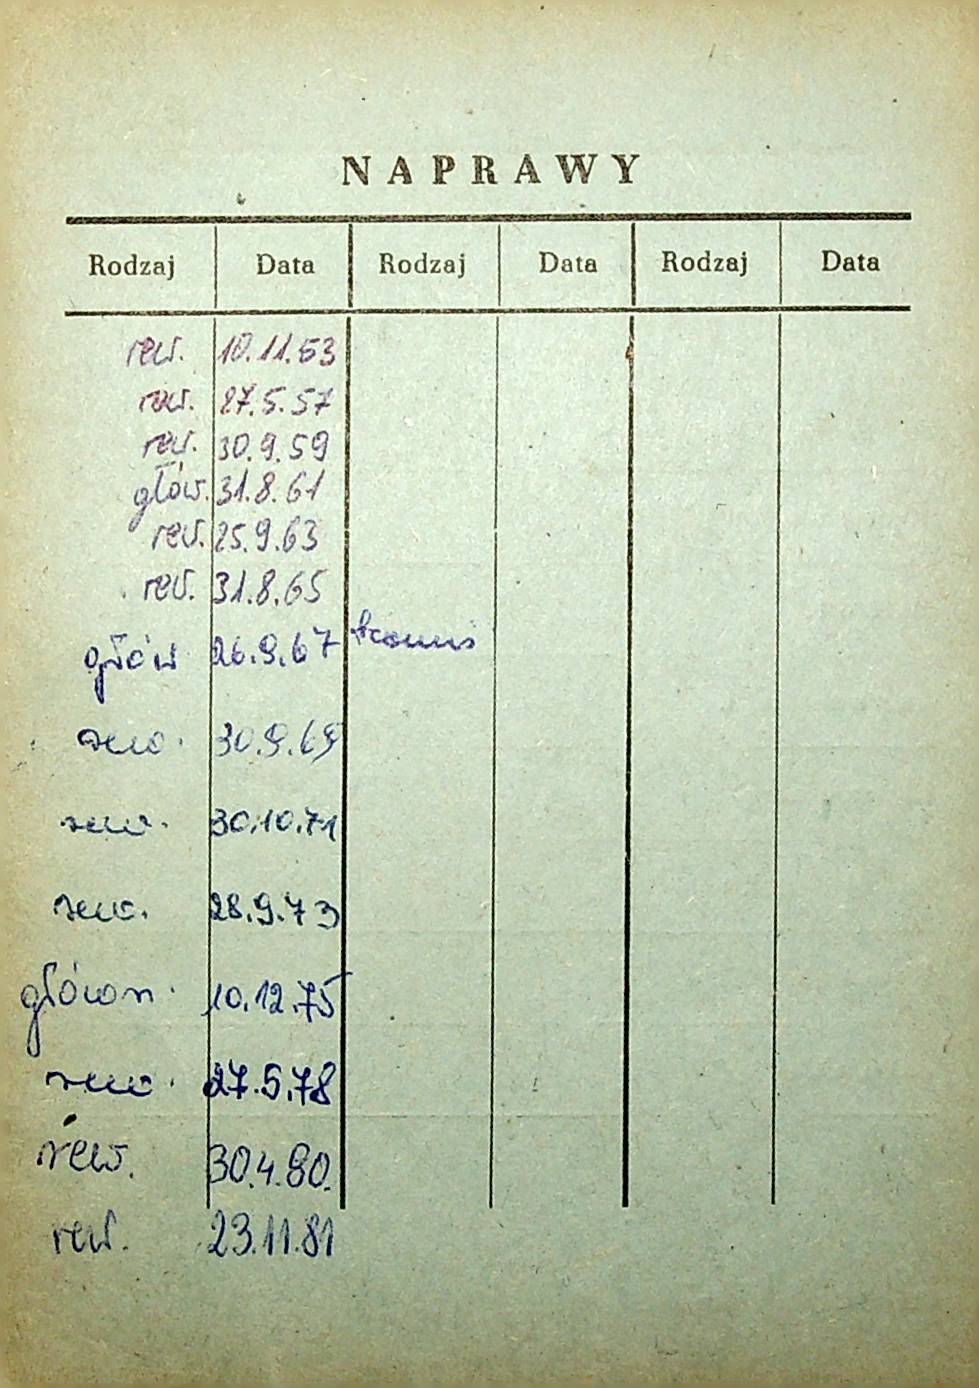 NAPRAWY
Rodzaj Data Rodzaj Data Rodzaj Data
rew. 10.11.53
rew. 27.5.57
rew. 30.9.59
głów. 31.8.61
rew. 25.9.63
rew. 31.8.65
głów 26.9.67
rew. 30.9.69
rew. 30.10.71
rew. 28.9.73
główn. 10.12.75
rew. 27.5.78
rew. 30.4.80.
rew. 23.11.81